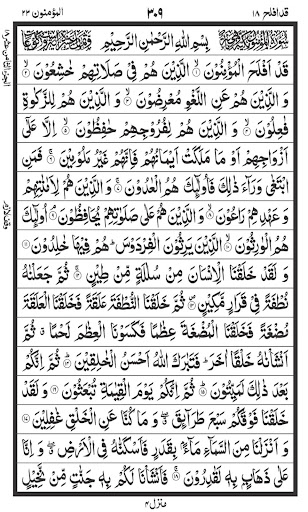 قد افلح ١٨
٣٠٩
المؤمنون ٢٣
بِسْمِ اللّٰهِ الرَّحْمٰنِ الرَّحِيْمِ
قَدْ اَفْلَحَ الْمُؤْمِنُوْنَ ۙ۱ الَّذِيْنَ هُمْ فِيْ صَلَاتِهِمْ خٰشِعُوْنَ ۙ۲
وَ الَّذِيْنَ هُمْ عَنِ اللَّغْوِ مُعْرِضُوْنَ ۙ۳ وَ الَّذِيْنَ هُمْ لِلزَّكٰوةِ
فٰعِلُوْنَ ۙ۴ وَ الَّذِيْنَ هُمْ لِفُرُوْجِهِمْ حٰفِظُوْنَ ۙ۵ اِلَّا عَلٰۤى
اَزْوَاجِهِمْ اَوْ مَا مَلَكَتْ اَيْمَانُهُمْ فَاِنَّهُمْ غَيْرُ مَلُوْمِيْنَ ۚ۶ فَمَنِ
ابْتَغٰى وَرَآءَ ذٰلِكَ فَاُولٰٓئِكَ هُمُ الْعٰدُوْنَ ۚ۷ وَ الَّذِيْنَ هُمْ لِاَمٰنٰتِهِمْ
وَ عَهْدِهِمْ رٰعُوْنَ ۙ۸ وَ الَّذِيْنَ هُمْ عَلٰى صَلَوٰتِهِمْ يُحَافِظُوْنَ ۘ۹ اُولٰٓئِكَ
هُمُ الْوٰرِثُوْنَ ۙ۱۰ الَّذِيْنَ يَرِثُوْنَ الْفِرْدَوْسَ ؕ هُمْ فِيْهَا خٰلِدُوْنَ ۱۱
وَ لَقَدْ خَلَقْنَا الْاِنْسَانَ مِنْ سُلٰلَةٍ مِّنْ طِيْنٍ ۚ۱۲ ثُمَّ جَعَلْنٰهُ
نُطْفَةً فِيْ قَرَارٍ مَّكِيْنٍ ۪۱۳ ثُمَّ خَلَقْنَا النُّطْفَةَ عَلَقَةً فَخَلَقْنَا الْعَلَقَةَ
مُضْغَةً فَخَلَقْنَا الْمُضْغَةَ عِظٰمًا فَكَسَوْنَا الْعِظٰمَ لَحْمًا ۗ ثُمَّ
اَنْشَاْنٰهُ خَلْقًا اٰخَرَ ؕ فَتَبٰرَكَ اللّٰهُ اَحْسَنُ الْخٰلِقِيْنَ ؕ۱۴ ثُمَّ اِنَّكُمْ
بَعْدَ ذٰلِكَ لَمَيِّتُوْنَ ؕ۱۵ ثُمَّ اِنَّكُمْ يَوْمَ الْقِيٰمَةِ تُبْعَثُوْنَ ۱۶ وَ لَقَدْ
خَلَقْنَا فَوْقَكُمْ سَبْعَ طَرَآئِقَ ۖ وَ مَا كُنَّا عَنِ الْخَلْقِ غٰفِلِيْنَ ۱۷
وَ اَنْزَلْنَا مِنَ السَّمَآءِ مَآءًۢ بِقَدَرٍ فَاَسْكَنّٰهُ فِي الْاَرْضِ ۖ وَ اِنَّا
عَلٰى ذَهَابٍۭ بِهٖ لَقٰدِرُوْنَ ۚ۱۸ فَاَنْشَاْنَا لَكُمْ بِهٖ جَنّٰتٍ مِّنْ نَّخِيْلٍ
منزل ۴